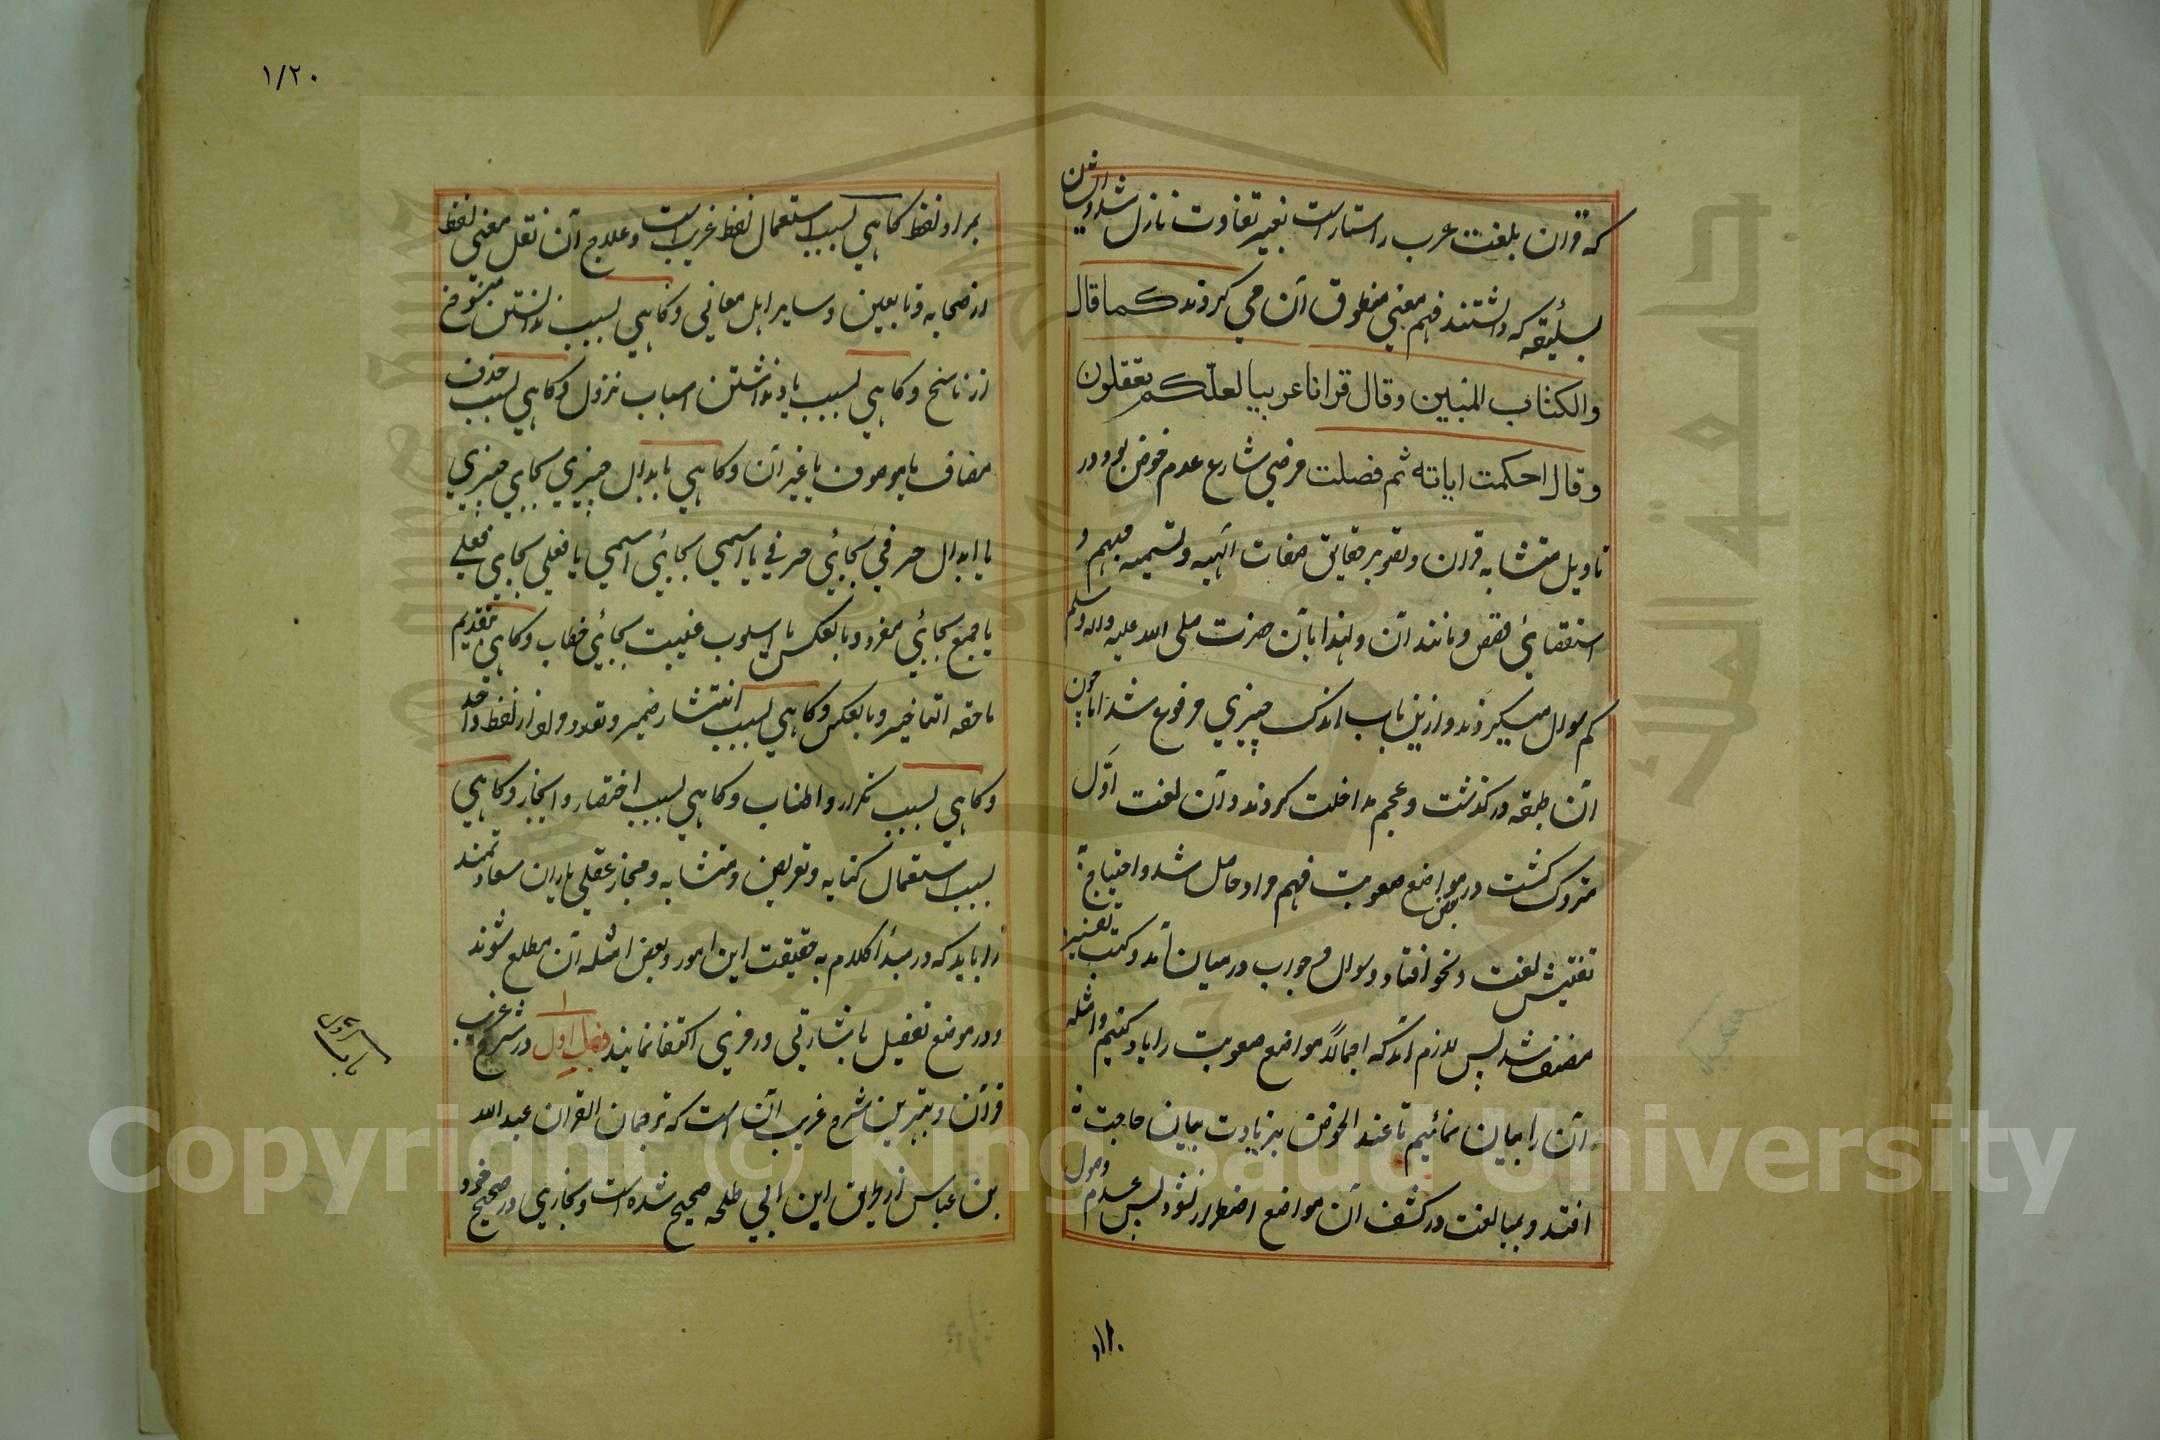 که قرآن بلغت عرب راستاراست بغیر تفاوت نازل شد و ایشان
بسلیقه که داشتند فهم معنی منطوق آن می کردند کما قال
والکتاب المبین وقال قرانا عربیا لعلکم تعقلون
وقال احکمت ایاته ثم فصلت مرضی شارع عدم خوض بود در
تاویل متشابه قرآن و تصویر حقایق صفات الهیه و تسمیه مبهم و
استقصای قصص و مانند آن و لهذا بآن حضرت صلی الله علیه واله وسلم
کم سوال میکردند و ازین باب اندک چیزی مرفوع شد اما چون
آن طبقه درگذشت و عجم مداخلت کردند و آن لغت اول
متروک گشت در بعض مواضع صعوبت فهم مراد حاصل شد و احتیاج به
تفتیش لغت و نحو افتاد و سوال و جواب درمیان آمد و کتب تفسیر
مصنف شد پس لازم آمد که اجمالا مواضع صعوبت را یاد کنیم و امثله
آن را بیان نمائیم تا عند الخوض بزیادت بیان حاجت نه
افتد و بمبالغت در کشف آن مواضع اضطرار نشود پس عدم وصول
بمراد لفظ گاهی بسبب استعمال لفظ غریب است و علاج آن نقل معنی لفظ
از صحابه و تابعین و سایر اهل معانی و گاهی بسبب ندانستن منسوخ
از ناسخ و گاهی بسبب یاد نداشتن اسباب نزول و گاهی بسبب حذف
مضاف یا موصوف یا غیر آن و گاهی بابدال چیزی بجای چیزی
یا ابدال حرفی بجائی حرفی یا اسمی بجائی اسمی یا فعلی بجای فعلی
یا جمع بجائی مفرد و بالعکس یا اسلوب غیبت بجائی خطاب و گاهی بتقدیم
ما حقه التاخیر و بالعکس و گاهی بسبب انتشار ضمیر و تعدد مراد از لفظ واحد
و گاهی بسبب تکرار و اطناب و گاهی بسبب اختصار و ایجاز و گاهی
بسبب استعمال کنایه و تعریض و متشابه و مجاز عقلی یاران سعادتمند
را باید که در مبدأ کلام به حقیقت این امور و بعض امثله آن مطلع شوند
و در موضع تفصیل باشارتی و رمزی اکتفا نمایند فصل اول در شرح غریب
قرآن و بهترین شرح غریب آن است که ترجمان القرآن عبد الله
بن عباس از طریق ابن ابی طلحه صحیح شده است و بخاری در صحیح خود
۱/۲۰
Copyright © King Saud University